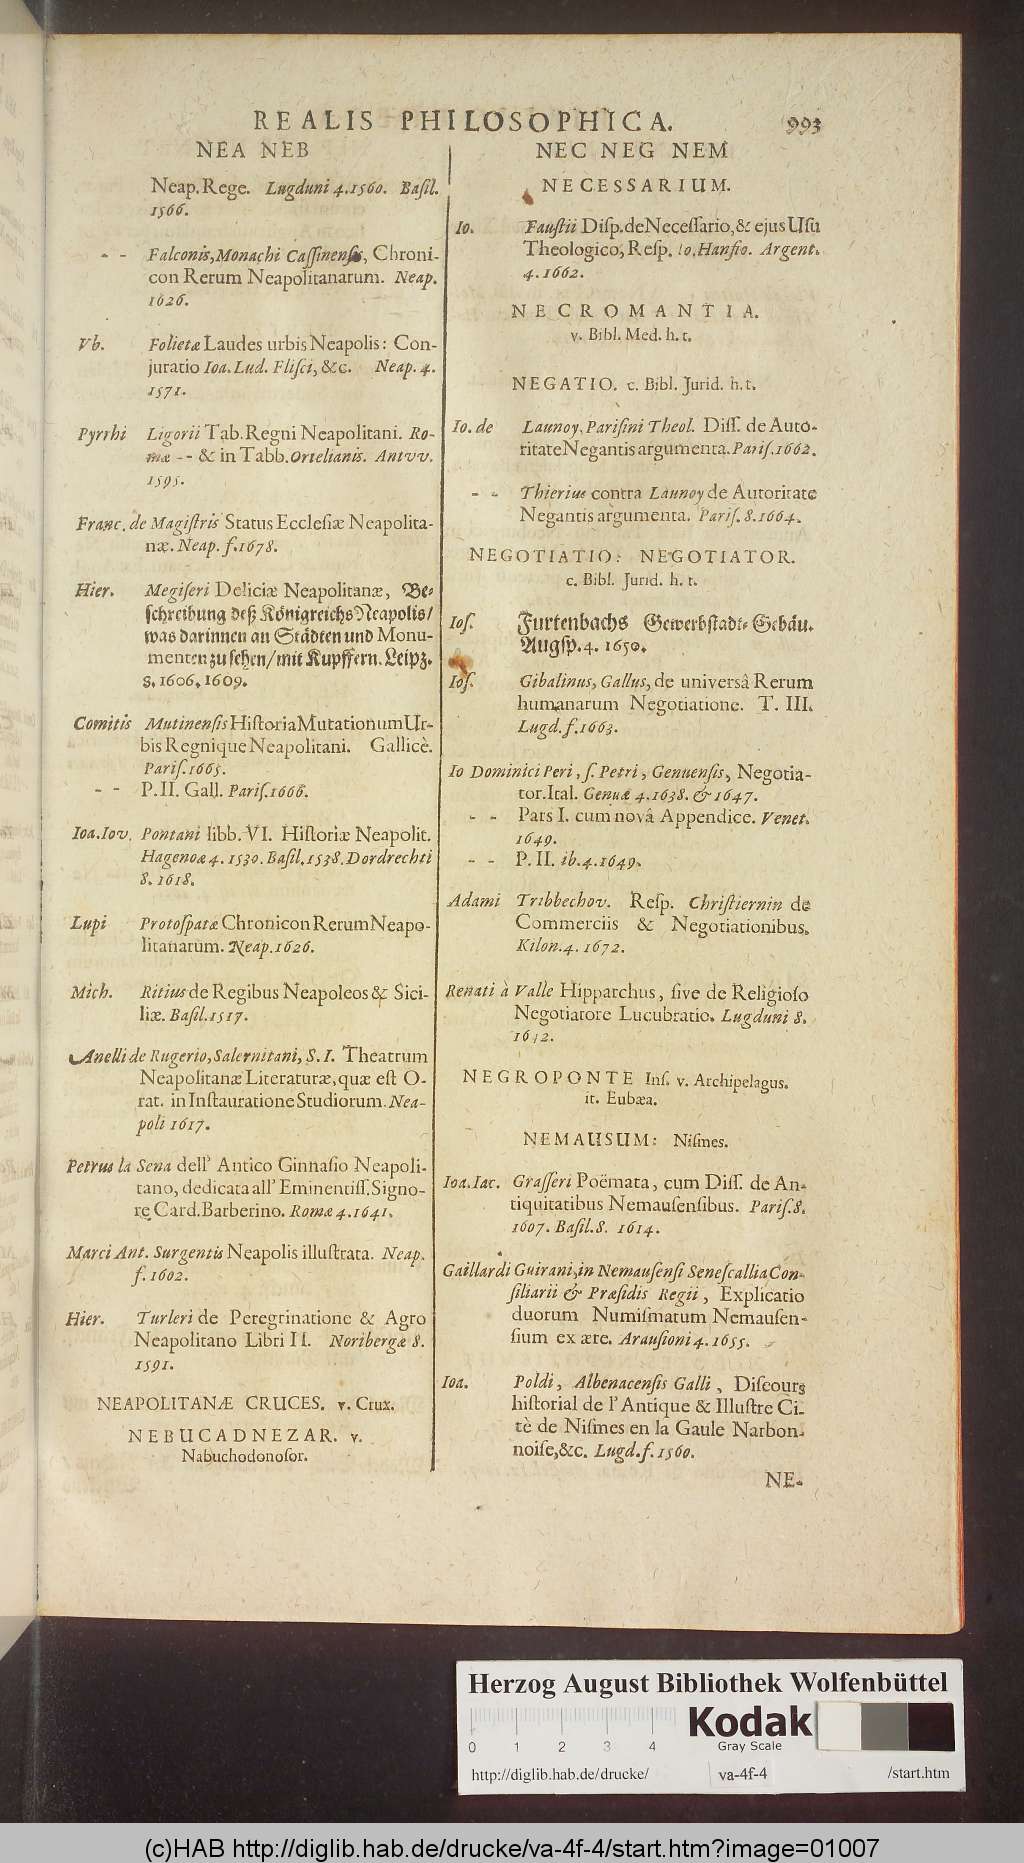 REALIS PHILOSOPHICA. 993
NEA NEB
Neap. Rege. Lugduni 4. 1560. Basil.
1566.
- - Falconis, Monachi Cassinensis, Chroni-
con Rerum Neapolitanarum. Neap.
1626.
Vb. Folietæ Laudes urbis Neapolis: Con-
juratio Ioa. Lud. Flisci, &c. Neap. 4.
1571.
Pyrrhi Ligorii Tab. Regni Neapolitani. Ro-
mæ - - & in Tabb. Ortelianis. Antvv.
1595.
Franc. de Magistris Status Ecclesiæ Neapolita-
næ. Neap. f. 1678.
Hier. Megiseri Deliciæ Neapolitanæ, Be-
schreibung deß Königreichs Neapolis/
was darinnen an Städten und Monu-
menten zu sehen/ mit Kupffern. Leipz.
8. 1606. 1609.
Comitis Mutinensis Historia Mutationum Ur-
bis Regnique Neapolitani. Gallicè.
Paris. 1665.
- - P. II. Gall. Paris. 1666.
Ioa. Iov. Pontani libb. VI. Historiæ Neapolit.
Hagenoæ 4. 1530. Basil. 1538. Dordrechti
8. 1618.
Lupi Protospatæ Chronicon Rerum Neapo-
litanarum. Neap. 1626.
Mich. Ritius de Regibus Neapoleos & Sici-
liæ. Basil. 1517.
Anelli de Rugerio, Salernitani, S. I. Theatrum
Neapolitanæ Literaturæ, quæ est O-
rat. in Instauratione Studiorum. Nea-
poli 1617.
Petrus la Sena dell' Antico Ginnasio Neapoli-
tano, dedicata all' Eminentiss. Signo-
re Card. Barberino. Romæ 4. 1641.
Marci Ant. Surgentis Neapolis illustrata. Neap.
f. 1602.
Hier. Turleri de Peregrinatione & Agro
Neapolitano Libri II. Noribergæ 8.
1591.
NEAPOLITANÆ CRUCES. v. Crux.
NEBUCADNEZAR. v.
Nabuchodonosor.
NEC NEG NEM
NECESSARIUM.
Io. Faustii Disp. de Necessario, & ejus Usu
Theologico, Resp. Io. Hansio. Argent.
4. 1662.
NECROMANTIA.
v. Bibl. Med. h. t.
NEGATIO. c. Bibl. Jurid. h. t.
Io. de Launoy, Parisini Theol. Diss. de Auto-
ritate Negantis argumenta. Paris. 1662.
- - Thierius contra Launoy de Autoritate
Negantis argumenta. Paris. 8. 1664.
NEGOTIATIO: NEGOTIATOR.
c. Bibl. Jurid. h. t.
Ios. Furtenbachs Gewerbstadt-Gebäu.
Augsp. 4. 1650.
Ios. Gibalinus, Gallus, de universâ Rerum
humanarum Negotiatione. T. III.
Lugd. f. 1663.
Io Dominici Peri, f. Petri, Genuensis, Negotia-
tor. Ital. Genuæ 4. 1638. & 1647.
- - Pars I. cum novâ Appendice. Venet.
1649.
- - P. II. ib. 4. 1649.
Adami Tribbechov. Resp. Christiernin de
Commerciis & Negotiationibus.
Kilon. 4. 1672.
Renati à Valle Hipparchus, sive de Religioso
Negotiatore Lucubratio. Lugduni 8.
1642.
NEGROPONTE Ins. v. Archipelagus.
it. Eubæa.
NEMAUSUM: Nismes.
Ioa. Iac. Grasseri Poëmata, cum Diss. de An-
tiquitatibus Nemausensibus. Paris. 8.
1607. Basil. 8. 1614.
Gaillardi Guirani, in Nemausensi Senescallia Con-
siliarii & Præsidis Regii, Explicatio
duorum Numismatum Nemausen-
sium ex ære. Arausioni 4. 1655.
Ioa. Poldi, Albenacensis Galli, Discours
historial de l' Antique & Illustre Ci-
tè de Nismes en la Gaule Narbon-
noise, &c. Lugd. f. 1560.
NE-
Herzog August Bibliothek Wolfenbüttel
Kodak
0 1 2 3 4 Gray Scale
http://diglib.hab.de/drucke/ va-4f-4 /start.htm
(c)HAB http://diglib.hab.de/drucke/va-4f-4/start.htm?image=01007